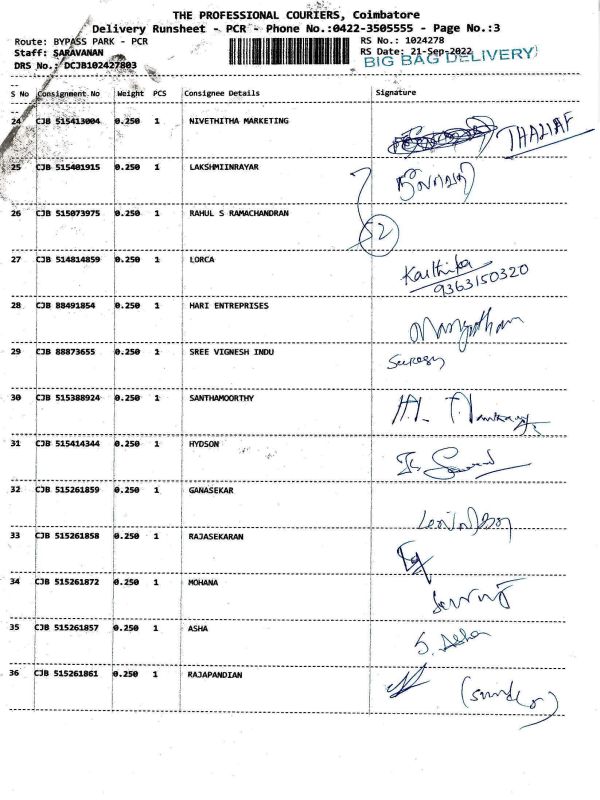 THE PROFESSIONAL COURIERS, Coimbatore
Delivery Runsheet - PCR - Phone No.:0422-3505555 - Page No.:3
Route: BYPASS PARK - PCR
RS No.: 1024278
Staff: SARAVANAN
RS Date: 21-Sep-2022
DRS No.: DCJB102427803
BIG BAG DELIVERY
S No Consignment No Weight PCS Consignee Details Signature
24 CJB 515413004 0.250 1 NIVETHITHA MARKETING
25 CJB 515401915 0.250 1 LAKSHMIINRAYAR
26 CJB 515073975 0.250 1 RAHUL S RAMACHANDRAN 52
27 CJB 514814859 0.250 1 LORCA Karthika
9363150320
28 CJB 88491854 0.250 1 HARI ENTREPRISES
29 CJB 88873655 0.250 1 SREE VIGNESH INDU Suresh
30 CJB 515388924 0.250 1 SANTHAMOORTHY
31 CJB 515414344 0.250 1 HYDSON
32 CJB 515261859 0.250 1 GANASEKAR
33 CJB 515261858 0.250 1 RAJASEKARAN
34 CJB 515261872 0.250 1 MOHANA
35 CJB 515261857 0.250 1 ASHA S. Asha
36 CJB 515261861 0.250 1 RAJAPANDIAN